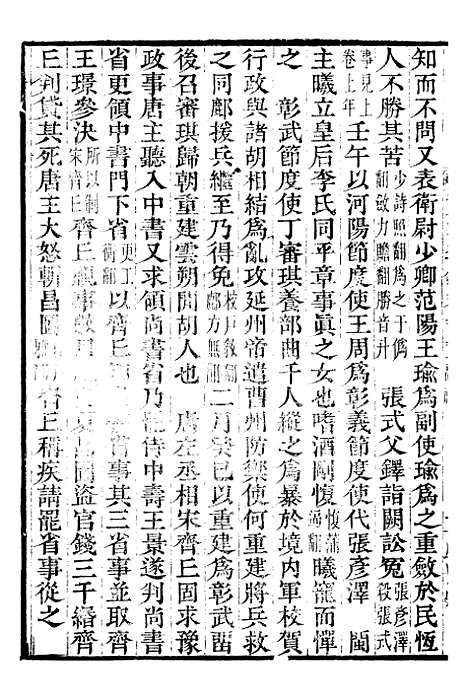 知而不問又表衛尉少卿范陽王瑜爲副使瑜爲之重斂於民恆
人不勝其苦少詩照翻爲之于僞翻斂力贍翻勝音升 張式父鐸詣闕訟冤張彥澤殺張式
事見上卷上年 壬午以河陽節度使王周爲彰義節度使代張彥澤 閩
主曦立皇后李氏同平章事眞之女也嗜酒剛愎愎蒲逼翻曦寵而憚
之 彰武節度使丁審琪養部曲千人縱之爲暴於境內軍校賀
行政與諸胡相結爲亂攻延州帝遣曹州防禦使何重建將兵救
之同鄜援兵繼至乃得免校戶敎翻鄜方無翻二月癸巳以重建爲彰武留
後召審琪歸朝重建雲朔間胡人也 唐左丞相宋齊丘固求豫
政事唐主聽入中書又求領尚書省乃罷侍中壽王景遂判尚書
省更領中書門下省更工衡翻以齊丘 省事其三省事並取齊
王璟參決所以制宋齊丘齊丘視事數月 昌圖盜官錢三千緡齊
丘判貸其死唐主大怒斬昌圖 齊丘稱疾請罷省事從之